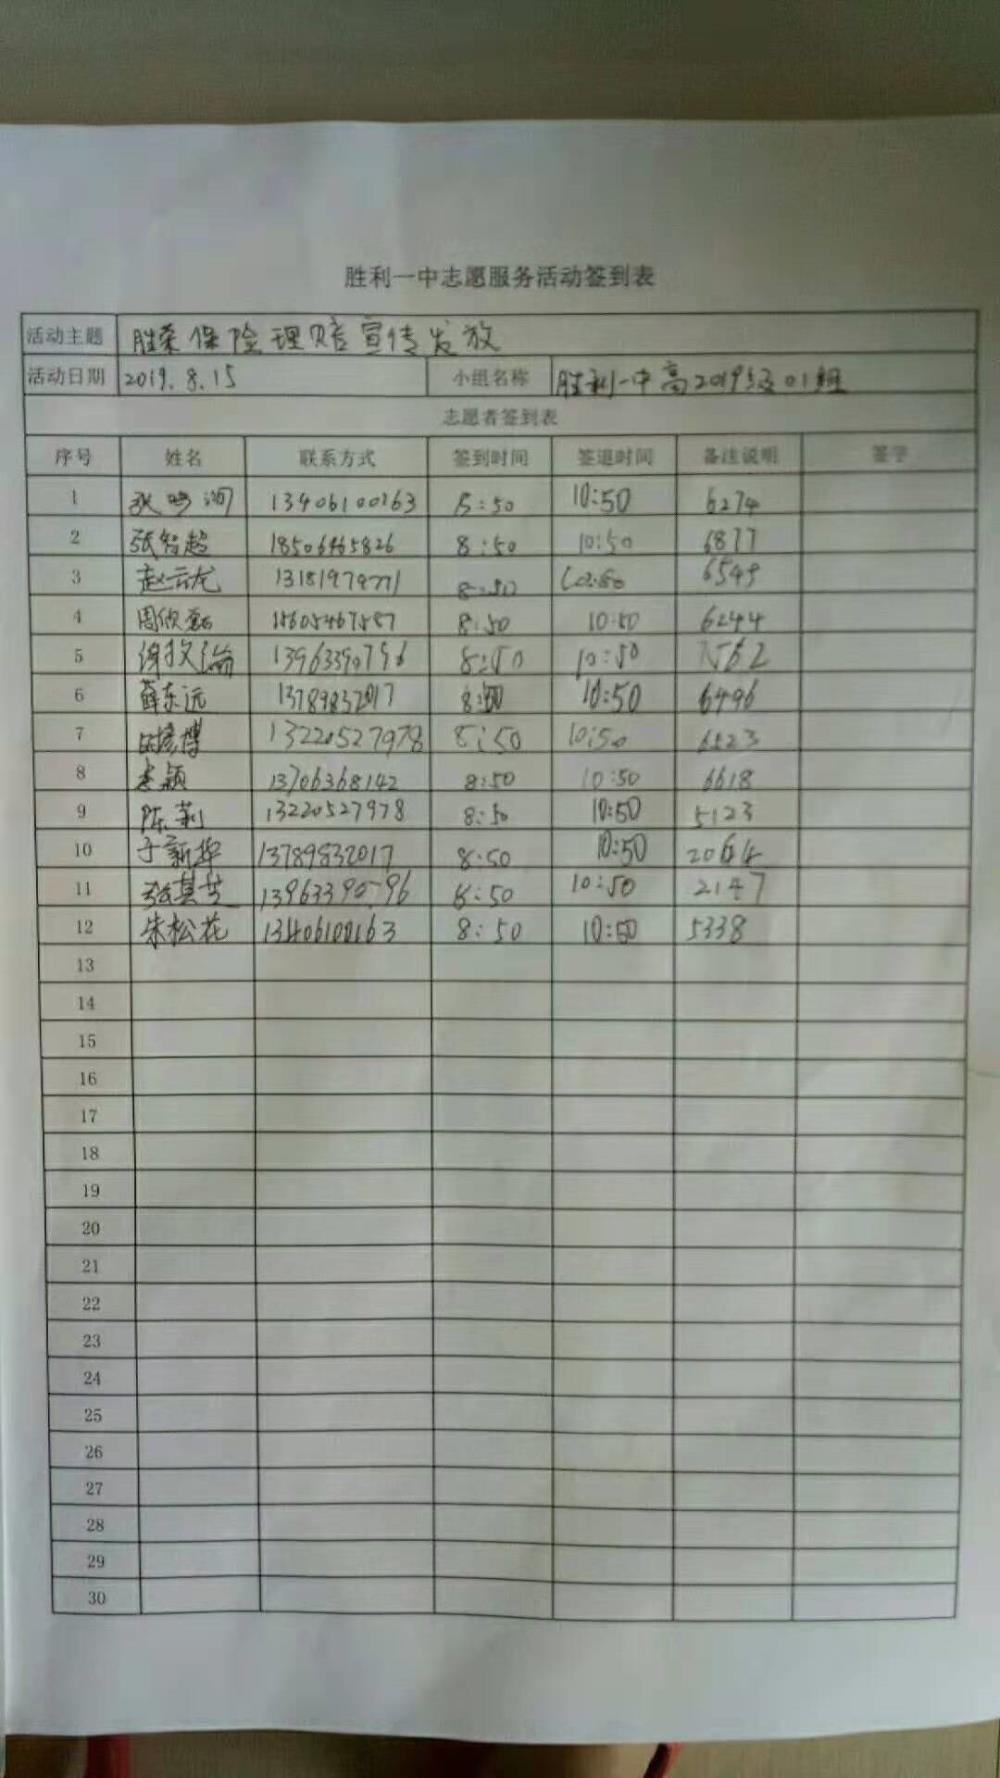 胜利一中志愿服务活动签到表
活动主题 胜荣保险理赔宣传发放
活动日期 2019.8.15 小组名称 胜利一中高2019级01组
志愿者签到表
序号 姓名 联系方式 签到时间 签退时间 备注说明 签字
1 13406100263 8:50 10:50 6274
2 张智超 18506465826 8:50 10:50 6877
3 赵云龙 13181979771 8:50 10:50 6549
4 8:50 10:50 6244
5 13963390796 8:50 10:50 7562
6 薛东远 13789832017 8:50 10:50 6496
7 13220527978 8:50 10:50 6523
8 李颖 13706368142 8:50 10:50 6618
9 陈莉 13220527978 8:50 10:50 5123
10 于新华 13789832017 8:50 10:50 2064
11 13963390796 8:50 10:50 2147
12 朱松花 13406100163 8:50 10:50 5338
13
14
15
16
17
18
19
20
21
22
23
24
25
26
27
28
29
30